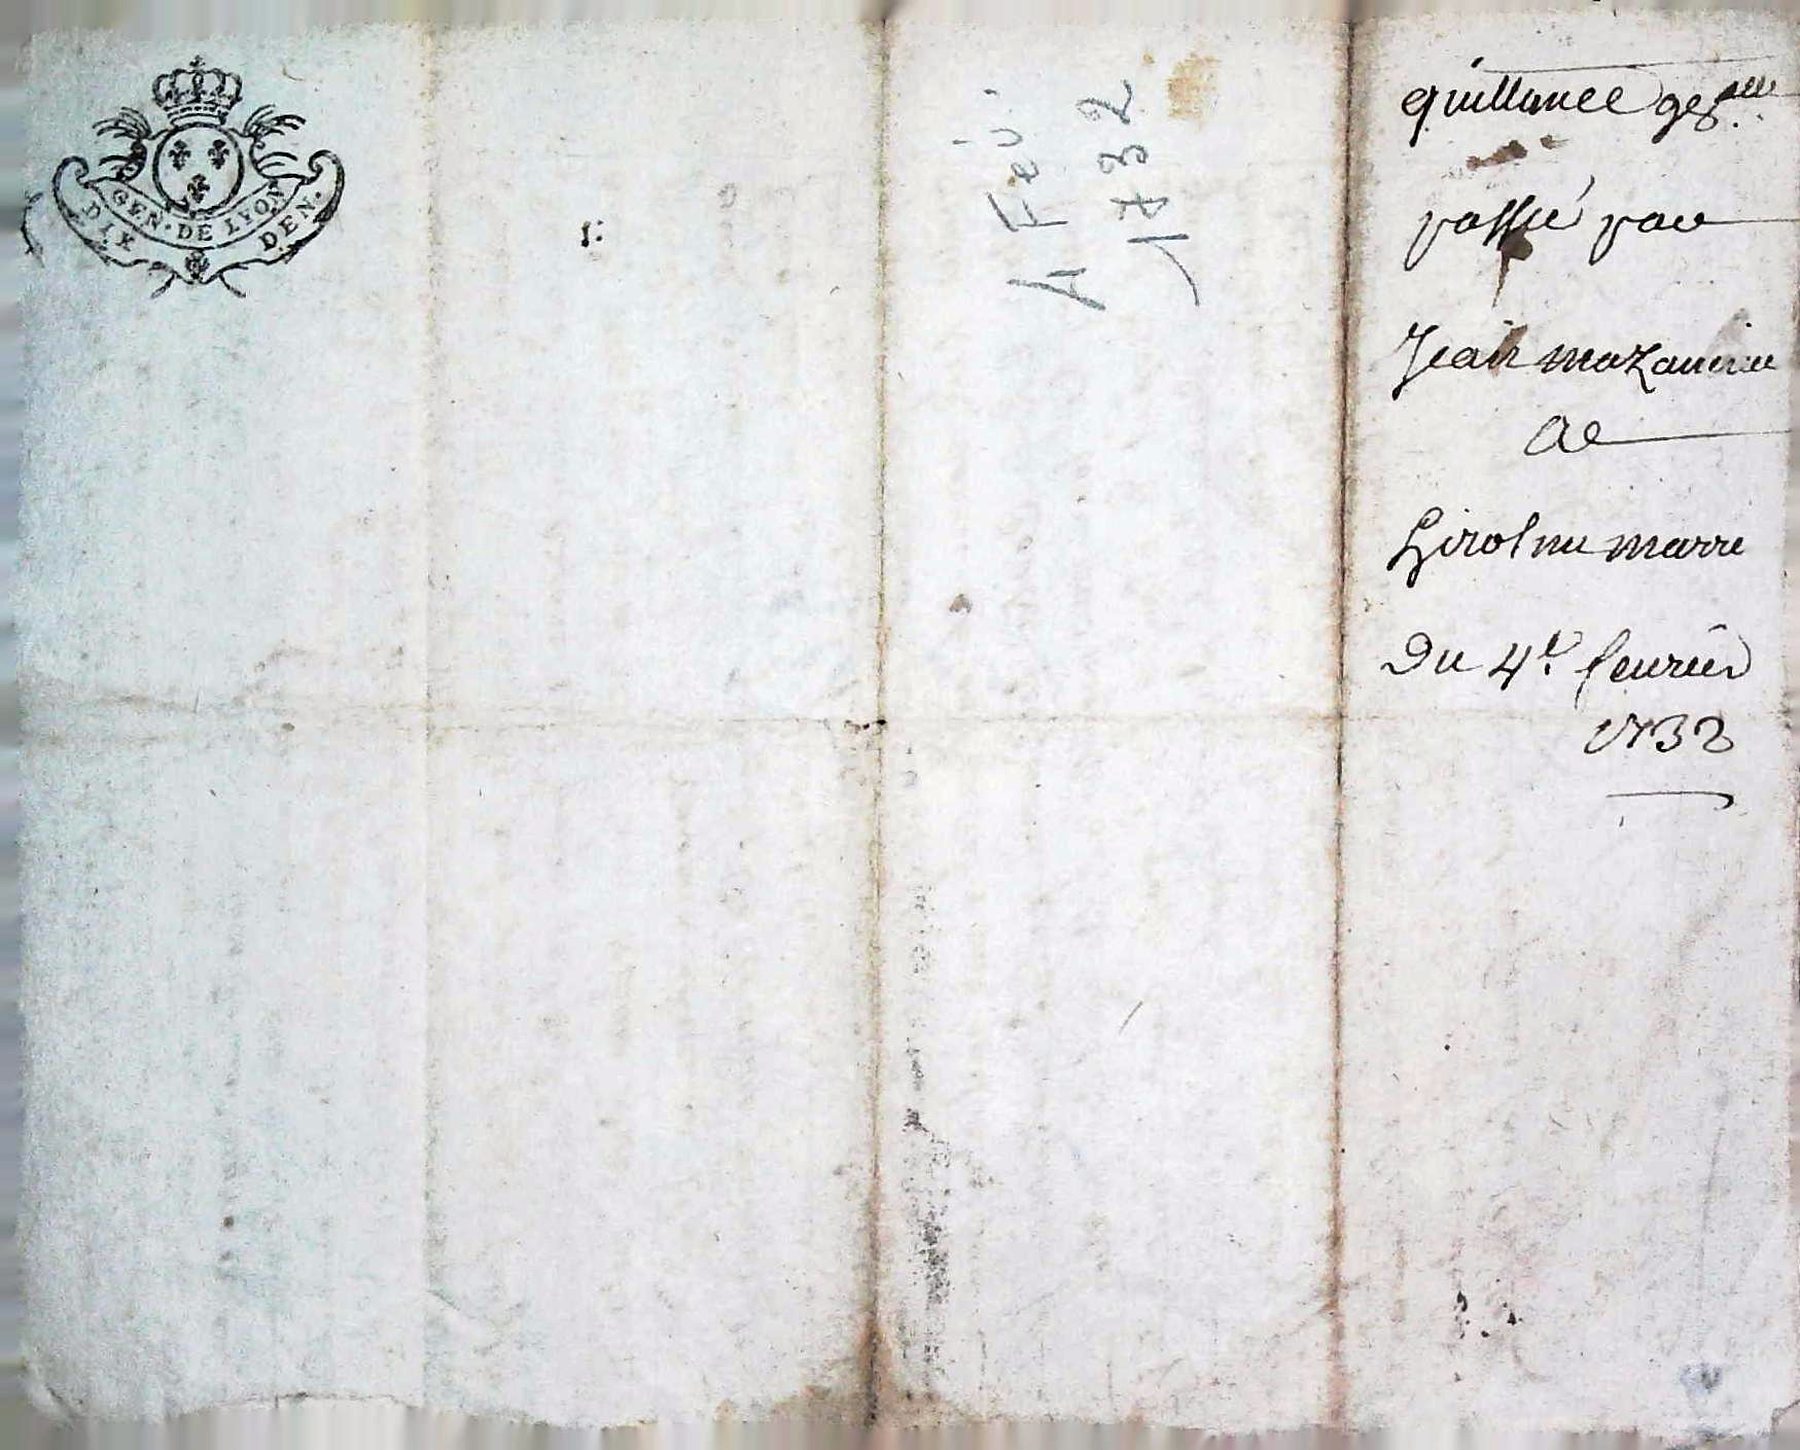 GEN · DE LYON
DIX DEN ·
4 Fev.
1732
quittance g̃lle
passé par
Jean mazancieu
ae
hirosme marre
Du 4e. feurier
1732